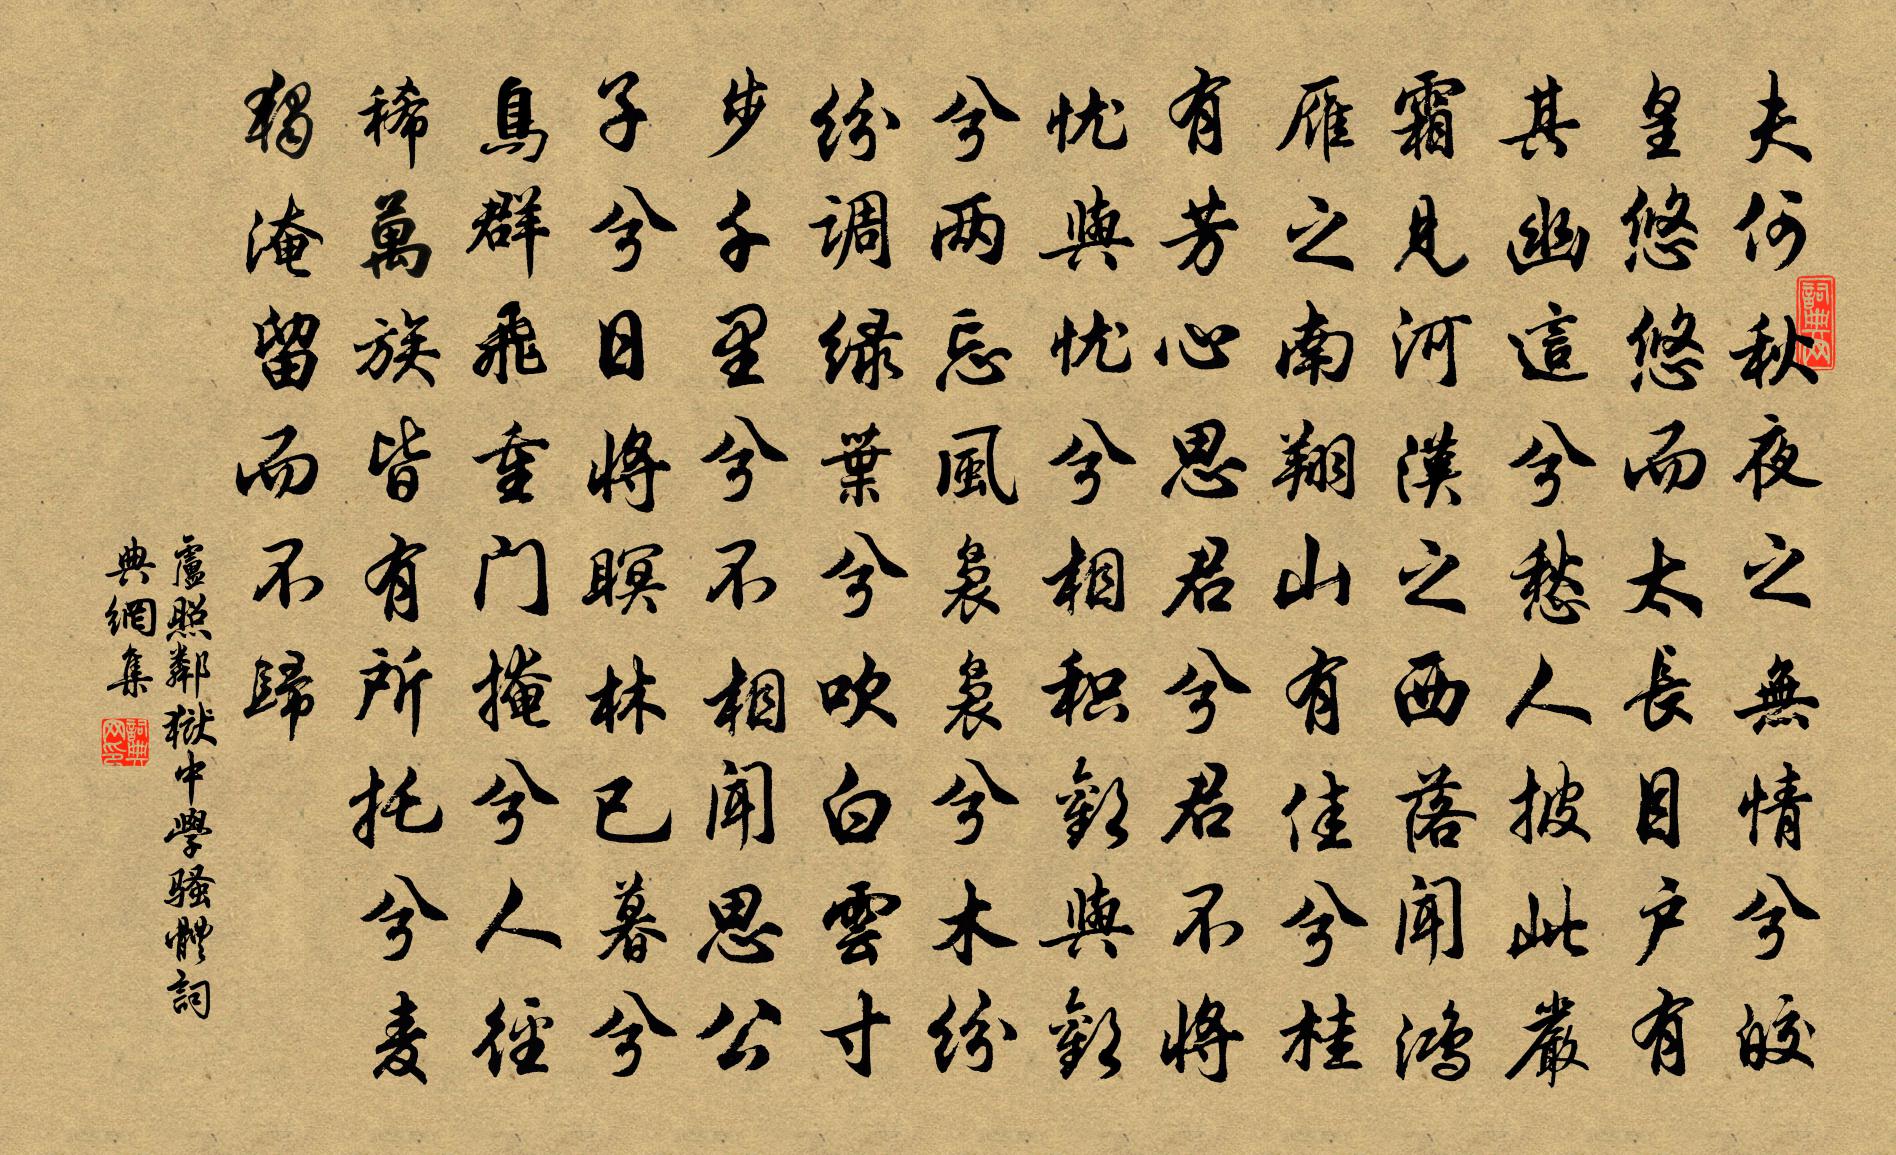 夫何秋夜之無情兮皎
皇悠悠而太長目户有
其幽這兮愁人披此嚴
霜見河漢之西落闻鸿
雁之南翔山有佳兮桂
有芳心思君兮君不将
忧與忧兮相积歡與歡
兮两忘風袅袅兮木纷
纷调绿葉兮吹白雲寸
步千里兮不相闻思公
子兮日将暝林已暮兮
鳥群飛重门掩兮人徑
稀萬族皆有所托兮麦
獨淹留而不歸
盧照鄰獄中學骚體詞
典網集
詞典网